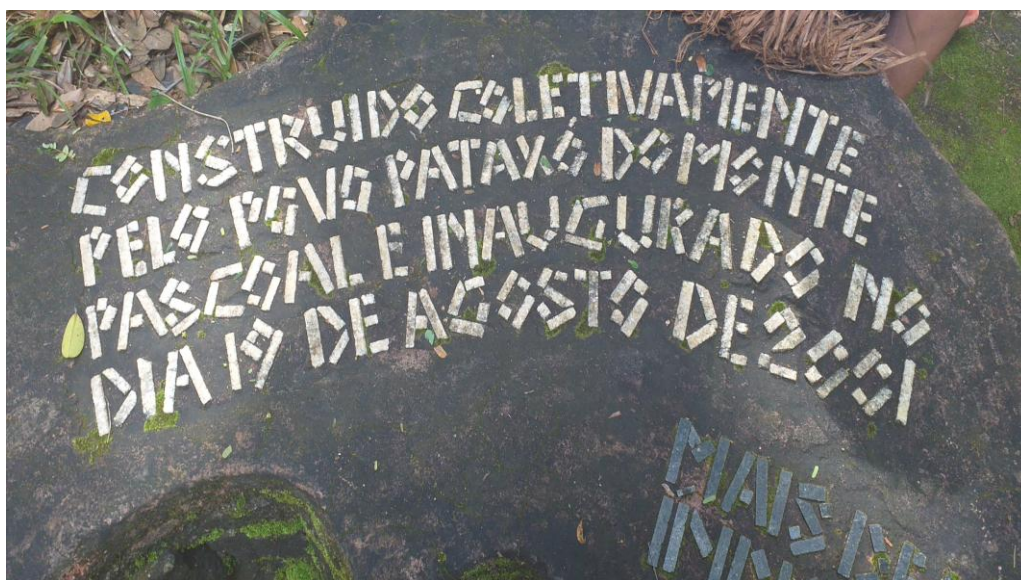 CONSTRUIDO COLETIVAMENTE
PELO POVO PATAXÓ DO MONTE
PASCOAL E INAUGURADO NO
DIA 19 DE AGOSTO DE 2001
MAIS